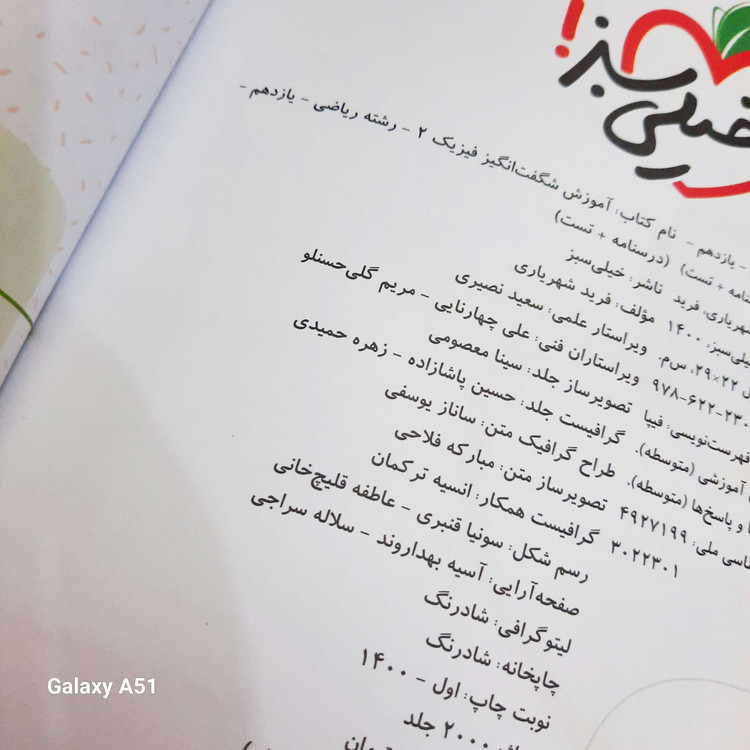 خیلی سبز!
نام کتاب: آموزش شگفت‌انگیز فیزیک ۲ - رشته ریاضی - یازدهم -
(درسنامه + تست)
ناشر: خیلی‌سبز
مؤلف: فرید شهریاری
ویراستار علمی: سعید نصیری
ویراستاران فنی: علی چهارنایی - مریم گلی‌حسنلو
تصویرساز جلد: سینا معصومی
گرافیست جلد: حسین پاشازاده - زهره حمیدی
طراح گرافیک متن: ساناز یوسفی
تصویرساز متن: مبارکه فلاحی
گرافیست همکار: انسیه ترکمان
رسم شکل: سونیا قنبری - عاطفه قلیچ‌خانی
صفحه‌آرایی: آسیه بهداروند - سلاله سراجی
لیتوگرافی: شادرنگ
چاپخانه: شادرنگ
نوبت چاپ: اول - ۱۴۰۰
۲۰۰۰ جلد
تومان
- یازدهم -
+ تست)
شهریاری، فرید
۱۴۰۰
۲۲×۲۹ س‌م.
۹۷۸-۶۲۲-۲۳۰
فهرست‌نویسی: فیپا
آموزشی (متوسطه).
و پاسخ‌ها (متوسطه).
ملی: ۴۹۲۷۱۹۹
۳۰۲۲۳۰۱
Galaxy A51